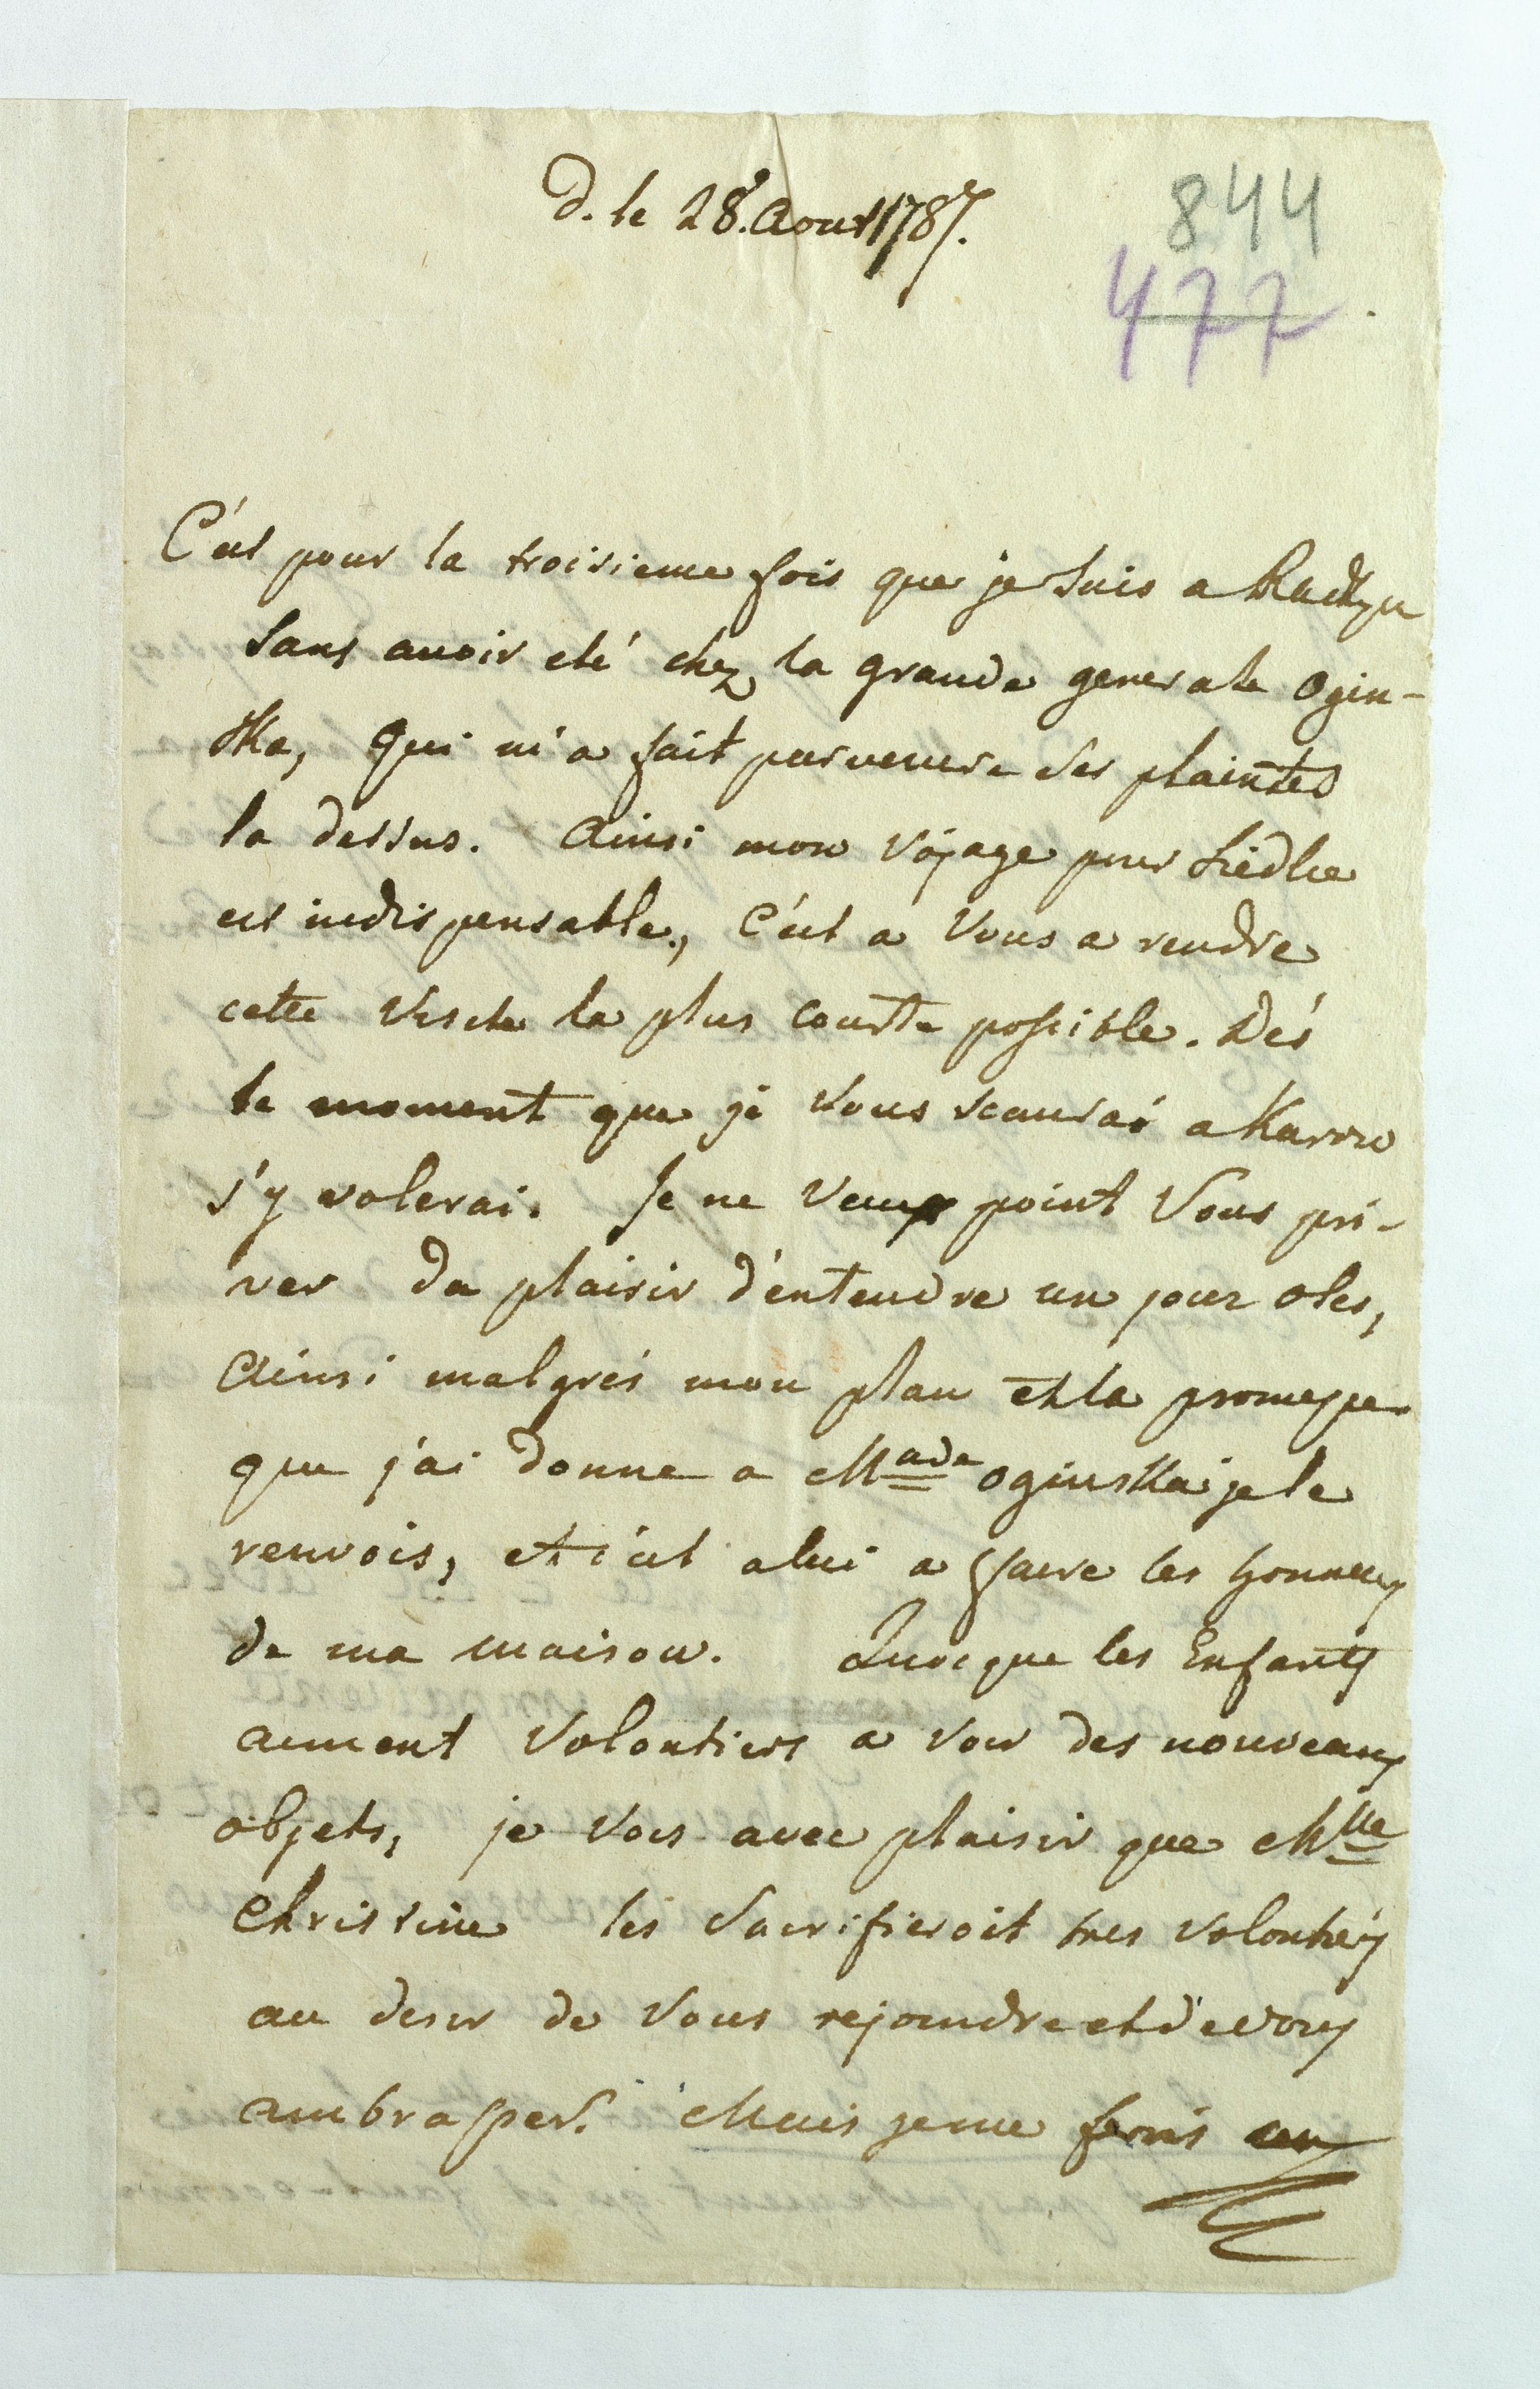 d. le 28. Aout 1787.
844
477
C'est pour la troisieme fois que je suis a Radzyn
sans avoir eté chez la grande generale Ogin-
ska, qui m'a fait parvenire ses plaintes
la dessus. Ainsi mon vojage pour Siedlce
est indispensable, c'est a Vous a rendre
cette visite la plus courte possible. Dés
le moment que je Vous scaurai a
j'y volerai. Je ne veux point Vous pri-
ver du plaisir d'entendre un jour Oles,
Ainsi malgrés mon plan et la promesse
que j'ai donne a Made Oginska je le
renvois, et c'est a lui a faire les honneurs
de ma maison. Quoique les Enfants
aiment volontiers a voir des nouveaux
objets, je vois avec plaisir que Mlle
Christine les sacrifieroit tres volontiers
au desir de Vous rejoindre et de vous
ambrasser. Mais je me ferois un